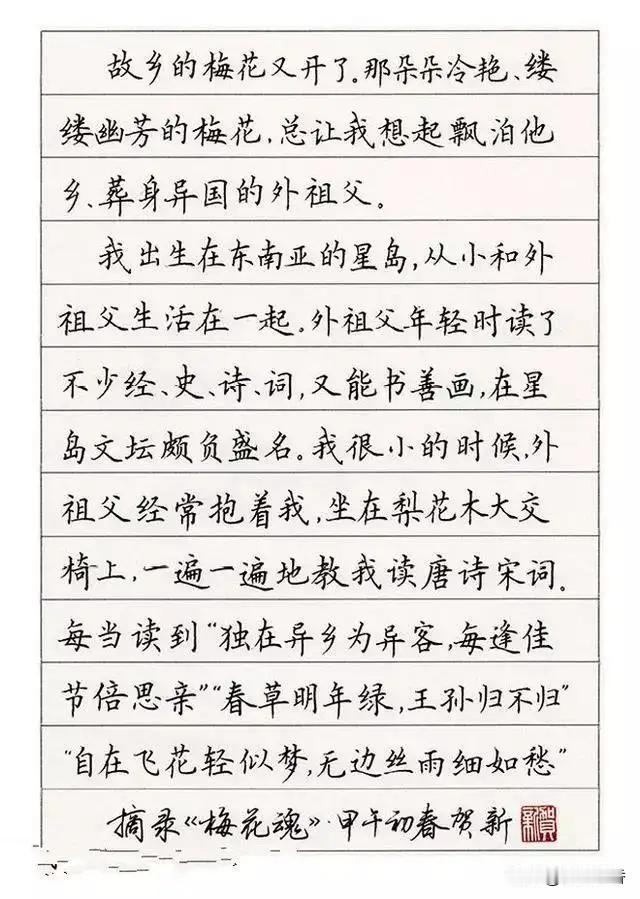 故乡的梅花又开了。那朵朵冷艳、缕
缕幽芳的梅花，总让我想起飘泊他
乡、葬身异国的外祖父。
我出生在东南亚的星岛，从小和外
祖父生活在一起。外祖父年轻时读了
不少经、史、诗、词，又能书善画，在星
岛文坛颇负盛名。我很小的时候，外
祖父经常抱着我，坐在梨花木大交
椅上，一遍一遍地教我读唐诗宋词。
每当读到“独在异乡为异客，每逢佳
节倍思亲”“春草明年绿，王孙归不归”
“自在飞花轻似梦，无边丝雨细如愁”
摘录《梅花魂》·甲午初春贺新
贺新